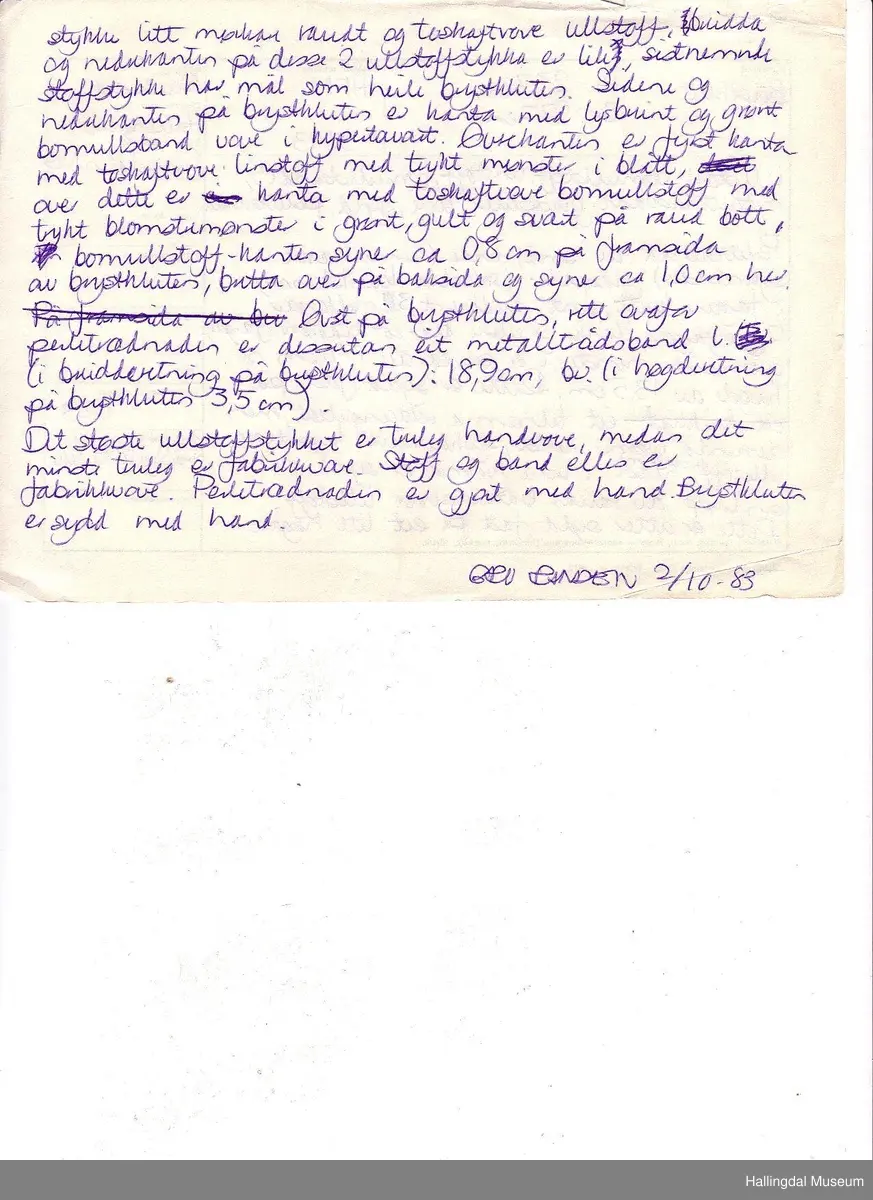 stykke litt mørkar raudt og toskaftvove ullstoff. Breidda
og nedrekanten på desse 2 ullstoffstykka er lik, sistnemnde
stoffstykke har mål som heile brystkluten. Sidene og
nedrekanten på brystkluten er kanta med lysbrunt og grønt
bomullsband vove i kypertavart. Øvrekanten er fyrst kanta
med toskaftvove linstoff med trykt mønster i blått,
over dette er kanta med toskaftvove bomullstoff med
trykt blomstermønster i grønt, gult og svart på raud bott,
bomullstoff-kanten syner ca 0,8 cm på framsida
av brystkluten, bretta over på baksida og syner ca 1,0 cm her.
På framsida av br Øvst på brystkluten, rett ovafor
perletrædnaden er dessutan eit metalltrådsband l.
(i breidderetning på brystkluten): 18,9 cm, br. (i høgderetning
på brystkluten 3,5 cm).
Det største ullstoffstykket er truleg handvove, medan det
minste truleg er fabrikkvove. Stoff og band elles er
fabrikkvove. Perletrædnaden er gjort med hand. Brystkluten
er sydd med hand.
2/10-83
Hallingdal Museum